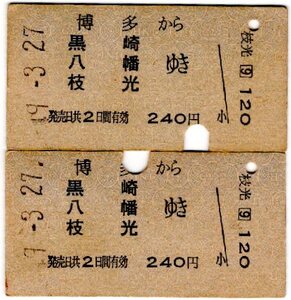 49-3.27
博多から
黒崎
八幡ゆき
枝光
発売日共2日間有効 240円
小
枝光 9 120
9-3.27.
博多から
黒崎
八幡ゆき
枝光
発売日共2日間有効 240円
小
枝光 9 120